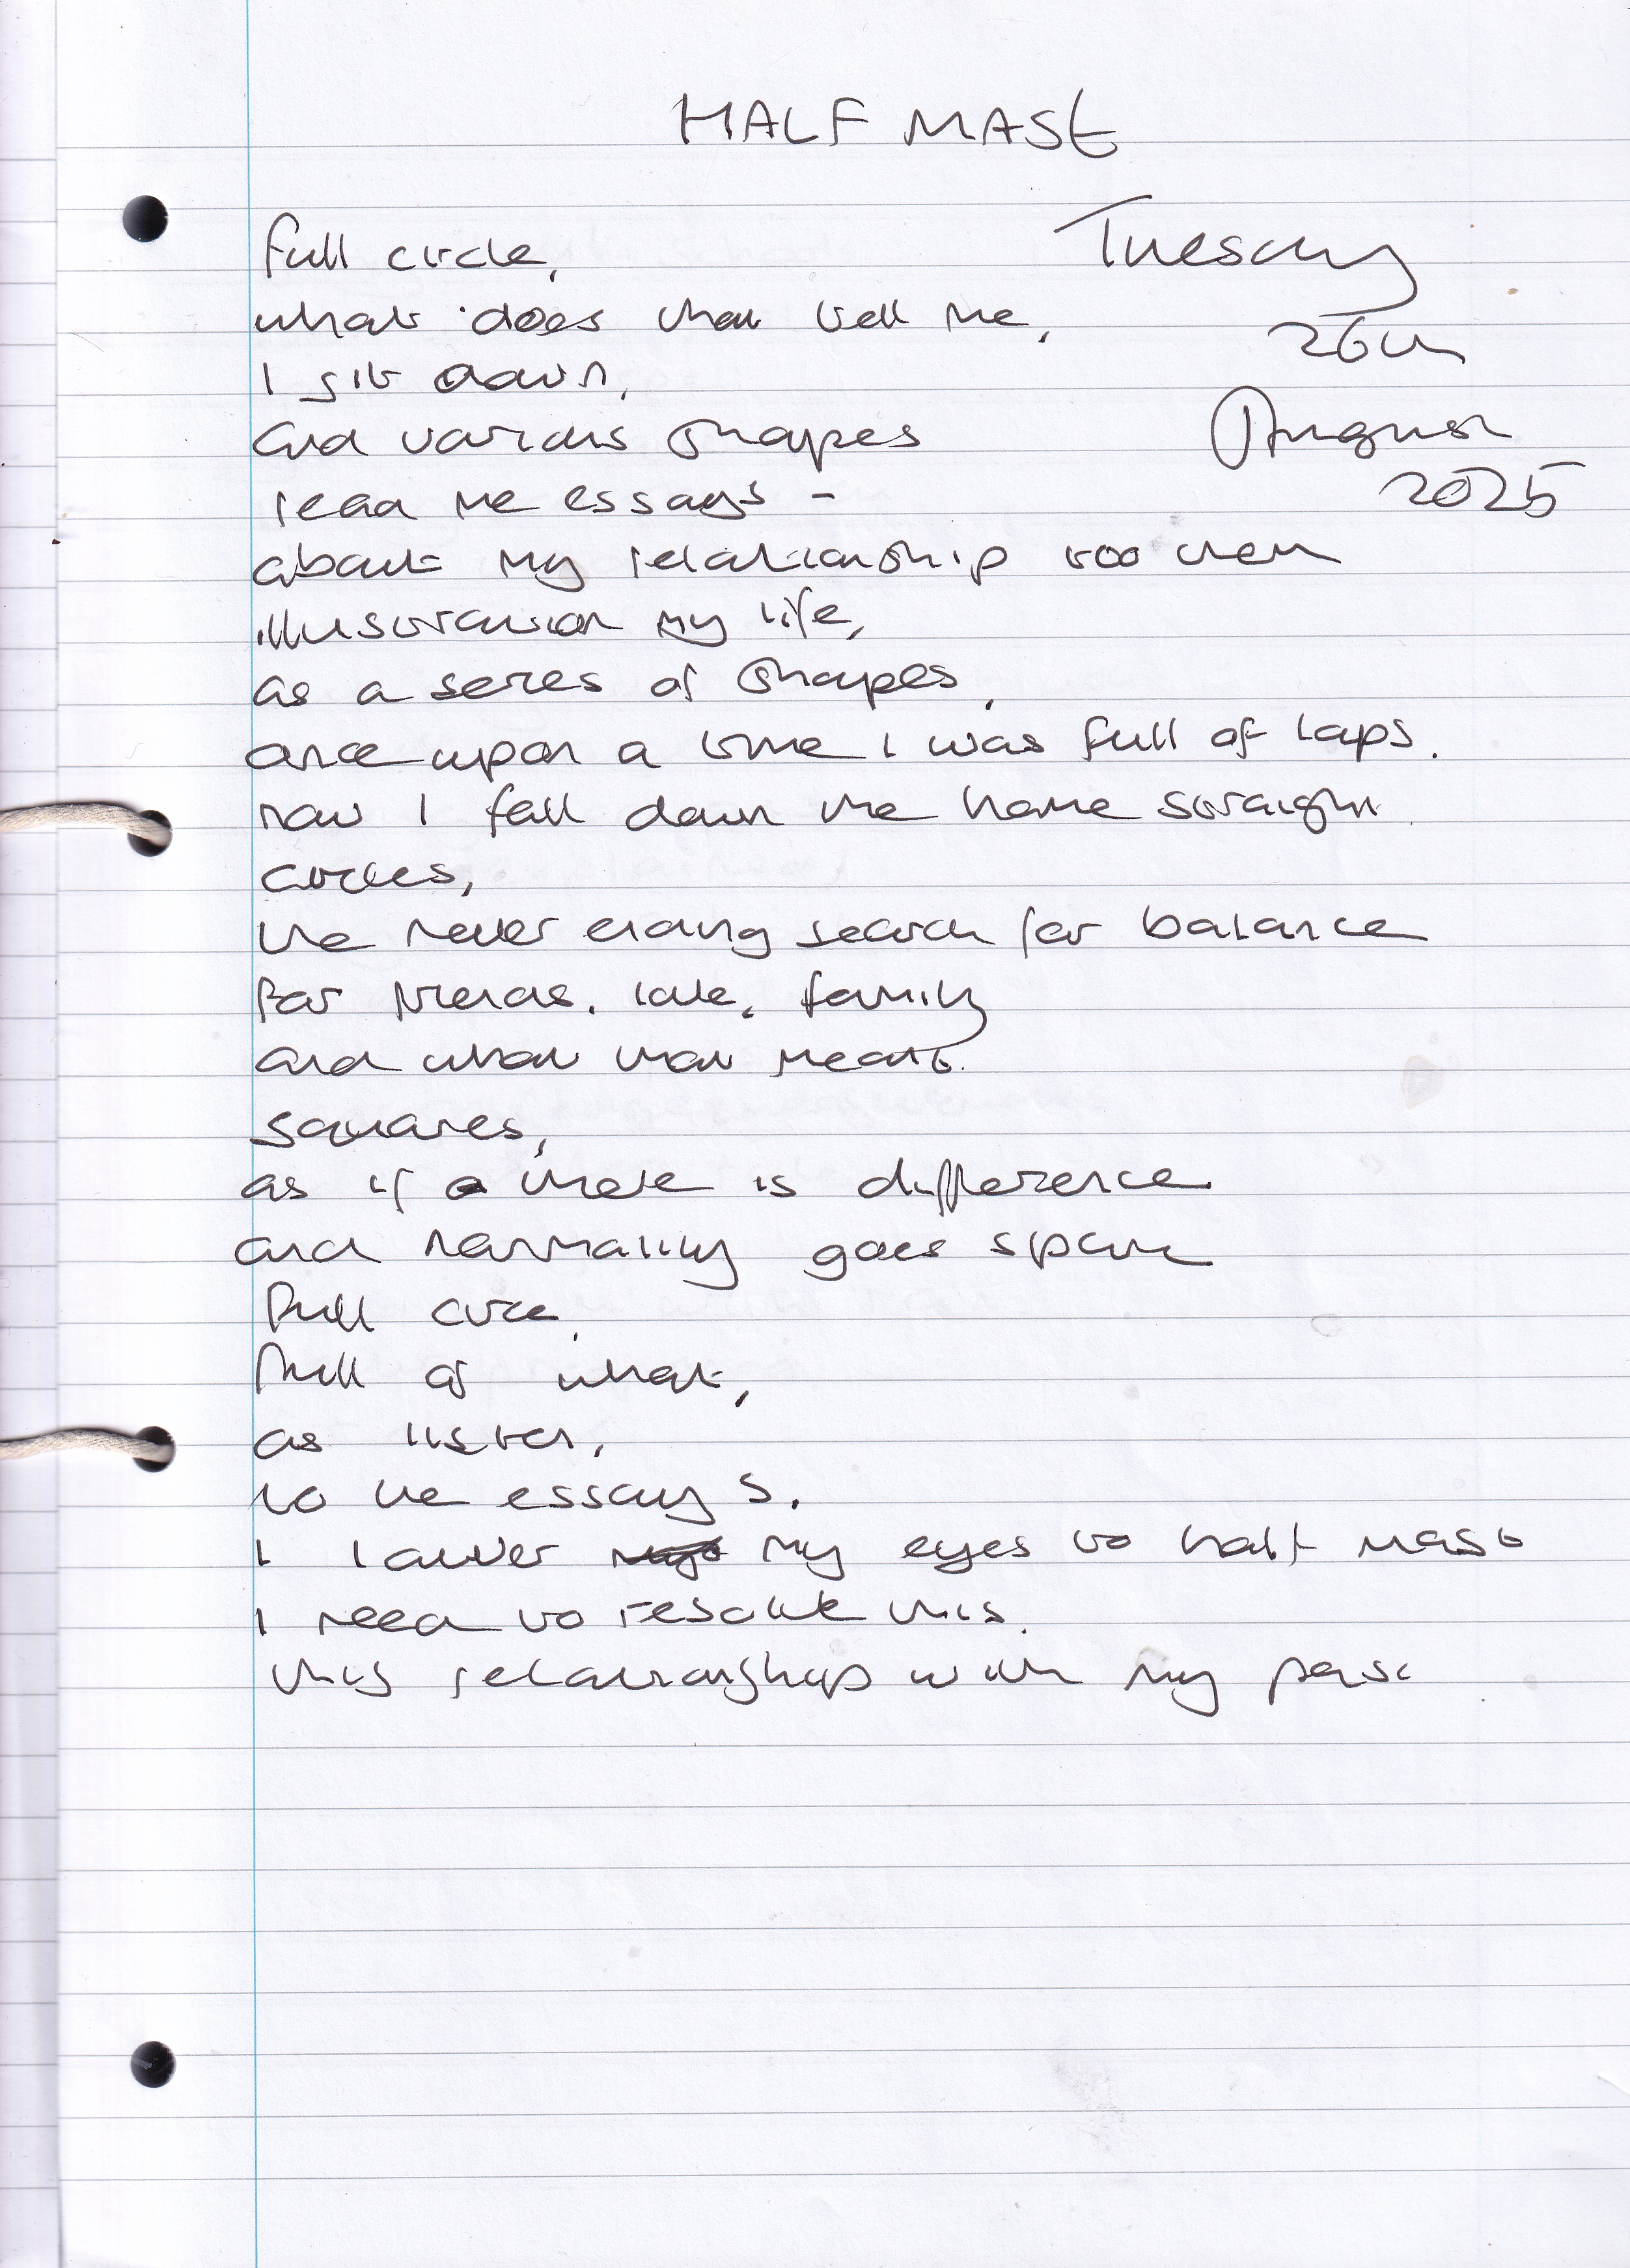 HALF MAST
Tuesday
26th
August
2025
full circle,
what does that tell me,
I sit down,
and various shapes
read me essays -
about my relationship too them
illustration my life,
as a series of shapes,
once upon a time I was full of laps.
now I fall down the home straight
circles,
the never ending search for balance
for friends, love, family
and what that means.
squares,
as if there is difference
and normality goes spare
full circle,
full of what,
as listen,
to the essays.
I lower my eyes to half mast
I need to resolve this.
this relationships with my past